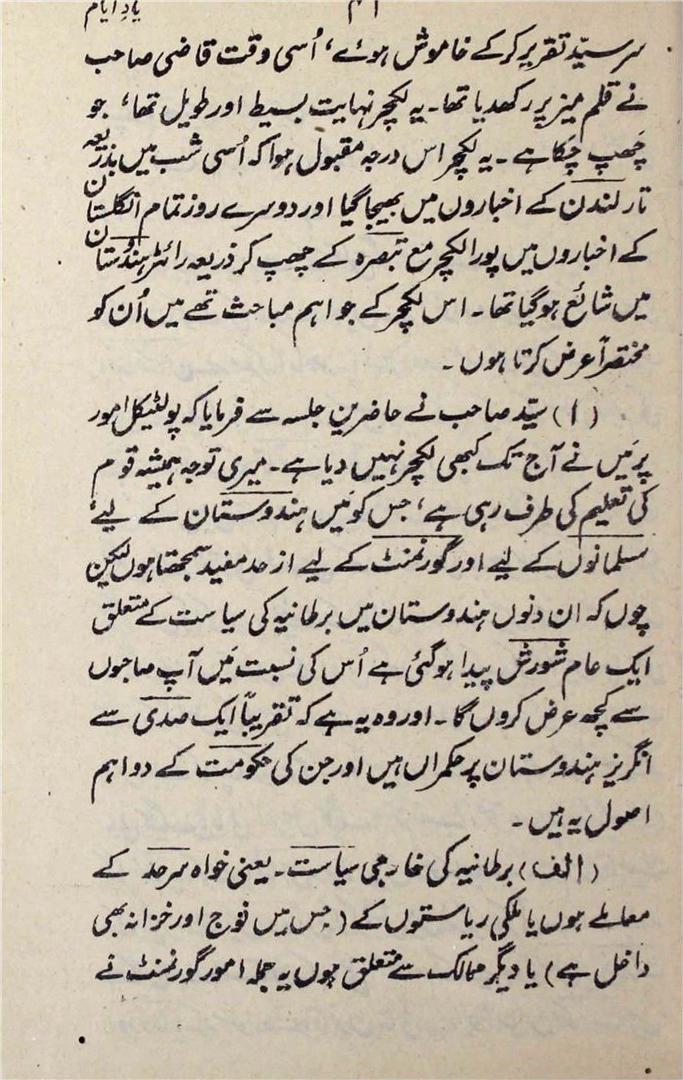 یادِ ایام
سرسیّد تقریر کرکے خاموش ہوئے، اُسی وقت قاضی صاحب
نے قلم میز پر رکھدیا تھا۔ یہ لکچر نہایت بسیط اور طویل تھا، جو
چھپ چکا ہے۔ یہ لکچر اس درجہ مقبول ہوا کہ اُسی شب میں بذریعہ
تار لندن کے اخباروں میں بھیجا گیا اور دوسرے روز تمام انگلستان
کے اخباروں میں پورا لکچر مع تبصرہ کے چھپ کر ذریعہ رائٹر ہندوستان
میں شائع ہوگیا تھا۔ اس لکچر کے جو اہم مباحث تھے میں اُن کو
مختصراً عرض کرتا ہوں۔
(۱) سیّد صاحب نے حاضرینِ جلسہ سے فرمایا کہ پولٹیکل امور
پر مَیں نے آج تک کبھی لکچر نہیں دیا ہے۔ میری توجہ ہمیشہ قوم
کی تعلیم کی طرف رہی ہے، جس کو مَیں ہندوستان کے لیے
مسلمانوں کے لیے اور گورنمنٹ کے لیے از حد مفید سمجھتا ہوں لیکن
چوں کہ ان دنوں ہندوستان میں برطانیہ کی سیاست کے متعلق
ایک عام شورش پیدا ہوگئی ہے اُس کی نسبت مَیں آپ صاحبوں
سے کچھ عرض کروں گا۔ اور وہ یہ ہے کہ تقریباً ایک صدی سے
انگریز ہندوستان پر حکمراں ہیں اور جن کی حکومت کے دو اہم
اصول یہ ہیں۔
(الف) برطانیہ کی خارجی سیاست۔ یعنی خواہ سرحد کے
معاملے ہوں یا ملکی ریاستوں کے (جس میں فوج اور خزانہ بھی
داخل ہے) یا دیگر ممالک سے متعلق ہوں یہ جملہ امور گورنمنٹ نے